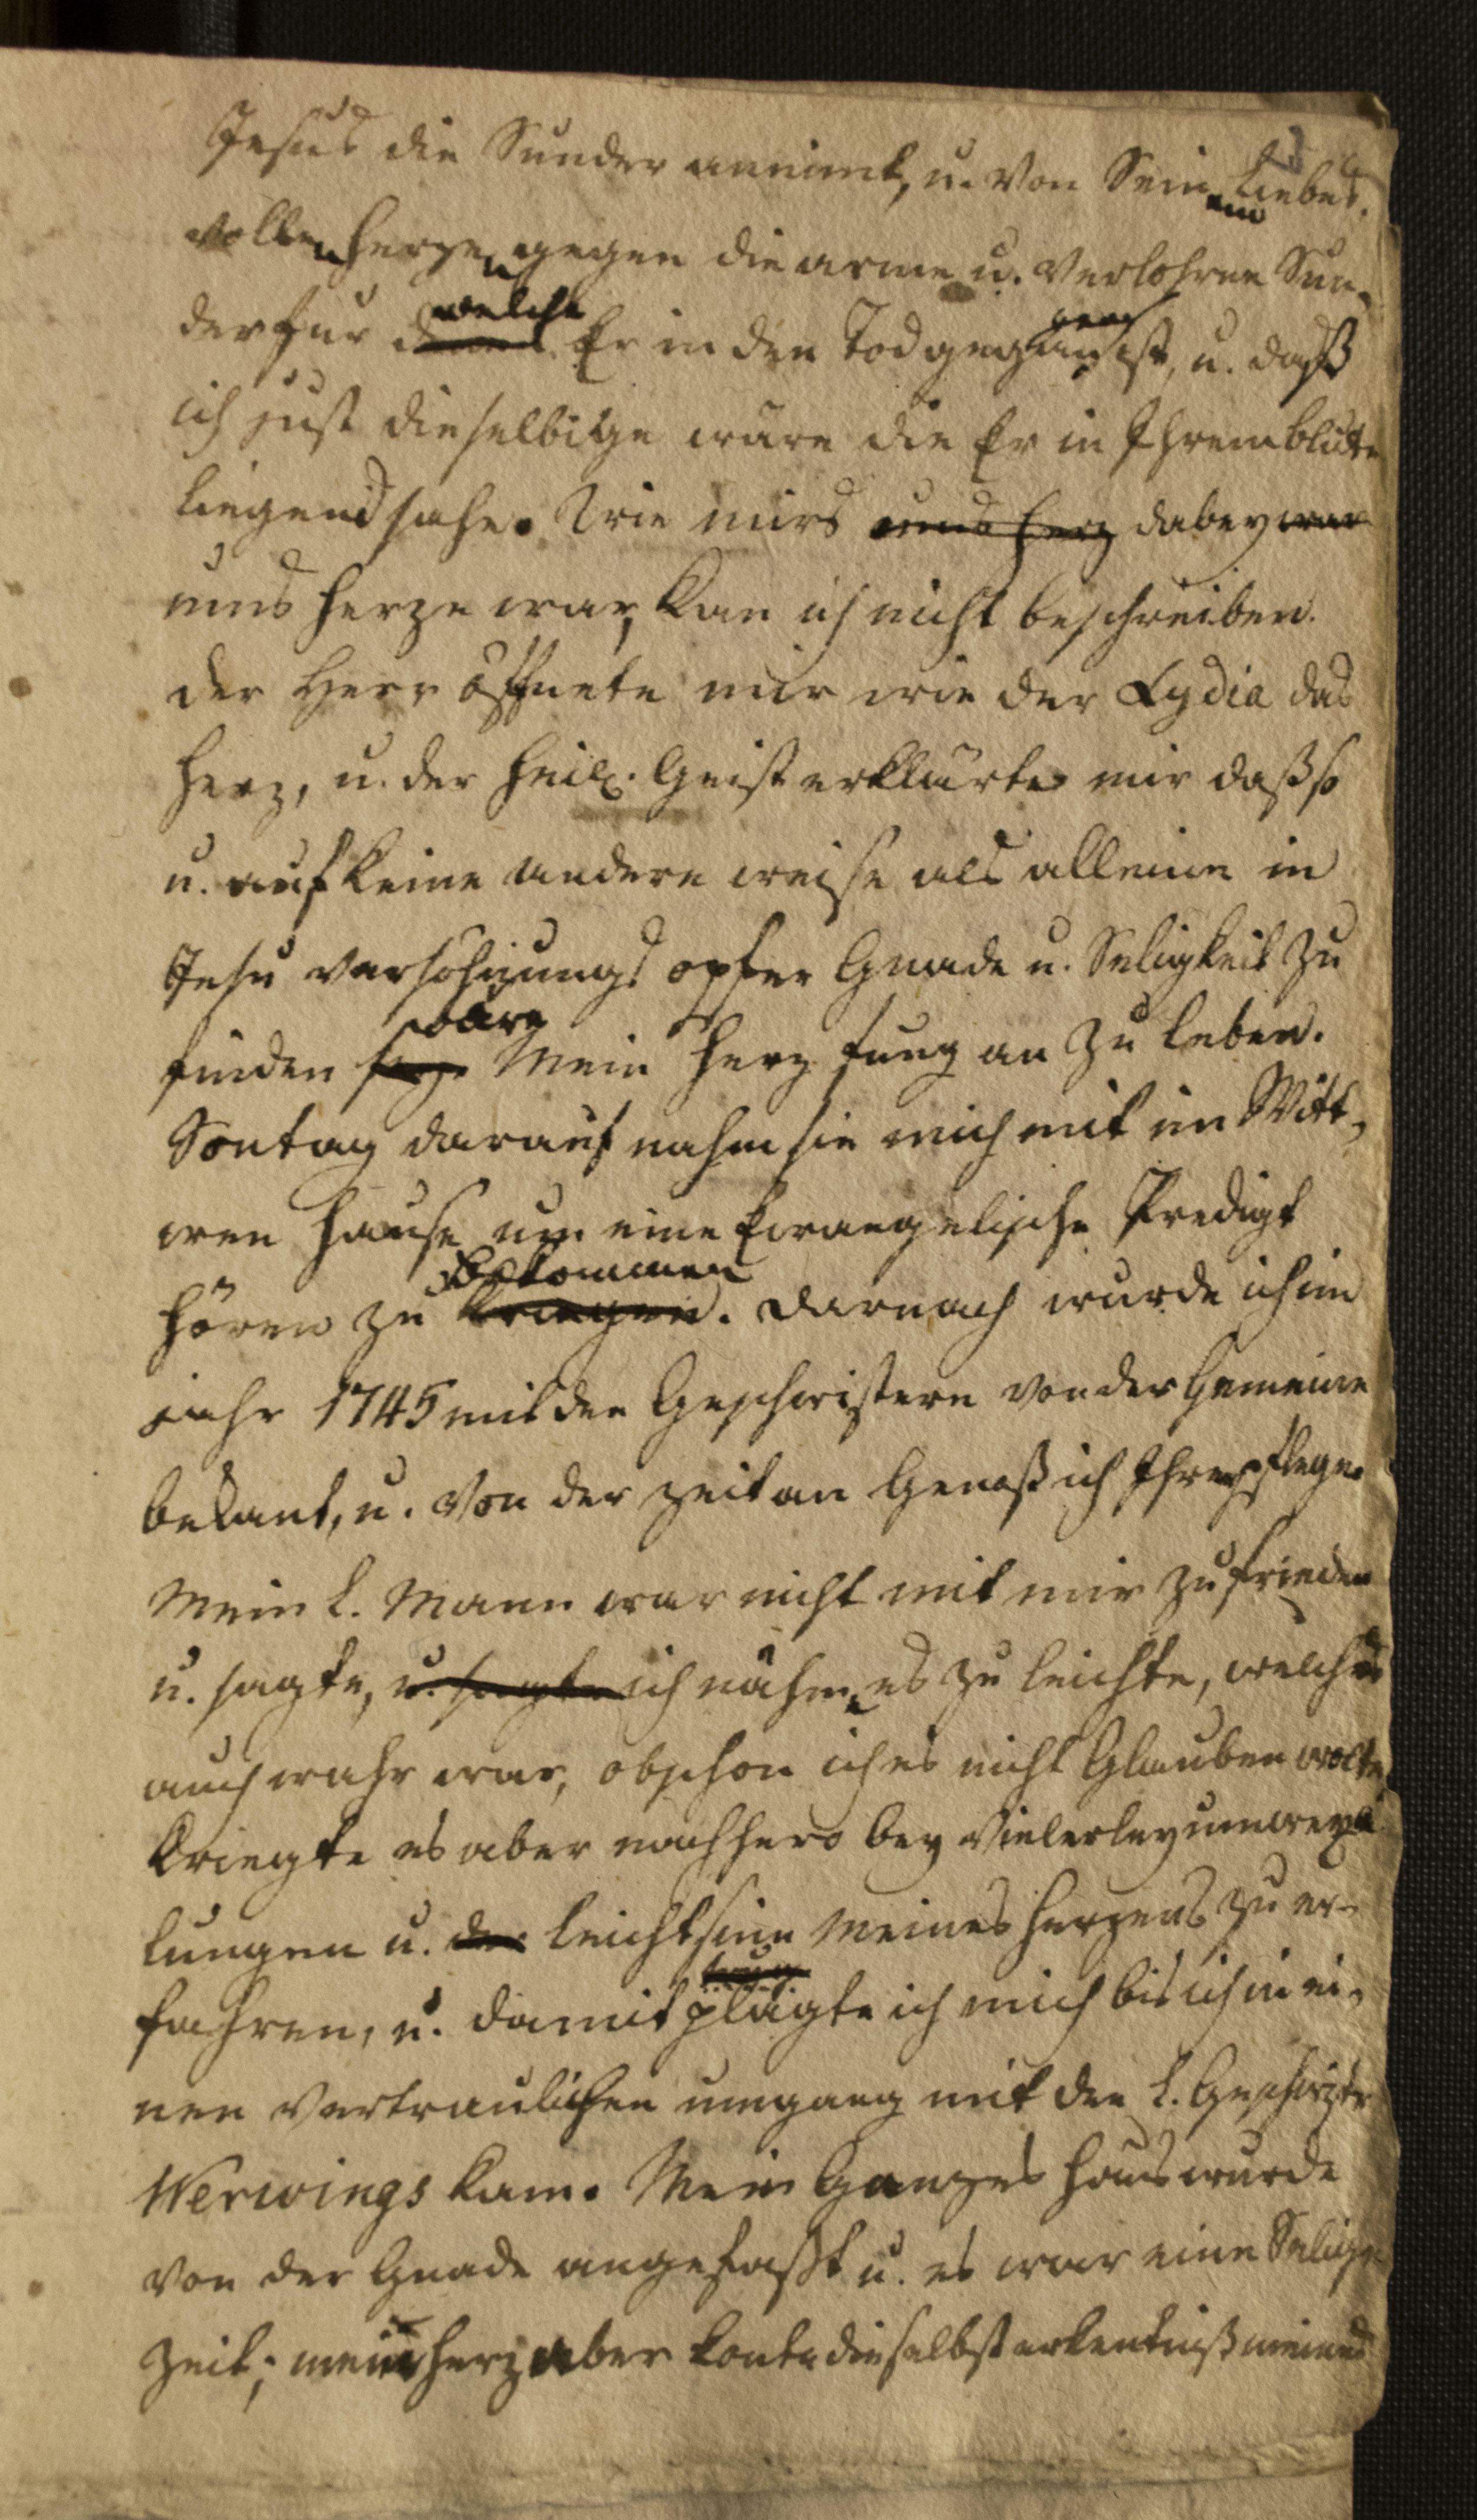 Jesus die Sunder annimt, u. von Seinem Liebes-
vollen Herzen gegen die arme u. verlohrne Sun-
der fur welche Er in den Tod gegangen ist, u. daß
ich just dieselbige wäre die Er in Ihrem blute
liegend sahe. Wie mirs ums Herz dabey war
ums Herze war, kan ich nicht beschreiben.
der Herr öffnete mir wie der Lydia das
Herz, u. der Heil. Geist erklärte mir daß so
u. auf keine andere weise als alleine in
Jesu versöhnungs opfer Gnade u. Seligkeit zu
finden wäre Mein Herz fung an zu leben.
Sontag darauf nahm sie mich mit im Witt-
wen Hause um eine Evangelische Predigt
hören zu bekommen kriegen. darnach wurde ich im
jahr 1745 mit den Geschwistern von der Gemeine
bekant, u. von der zeit an Genoß ich Ihre pflege.
Mein l. Mann war nicht mit mir zufrieden
u. sagte, u. sagte ich nähme es zu leichte, welches
auch wahr war, obschon ich es nicht Glauben wolte
kriegte es aber nachhero bey vielerley umwexe
lungen u. der leichtsinn meines Herzens zu er-
fahren, u. damit plagte ich mich bis ich in ei-
nen vertraulichen umgang mit den l. Geschwister
Werwings kam. Mein Ganzes Haus wurde
von der Gnade angefaßt u. es war eine Selige
zeit; mein Herz aber konte die selbst erkentniß meines